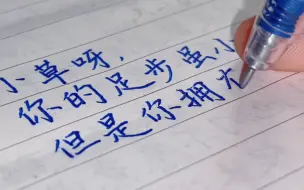 小草呀，
你的足步虽小
但是你拥